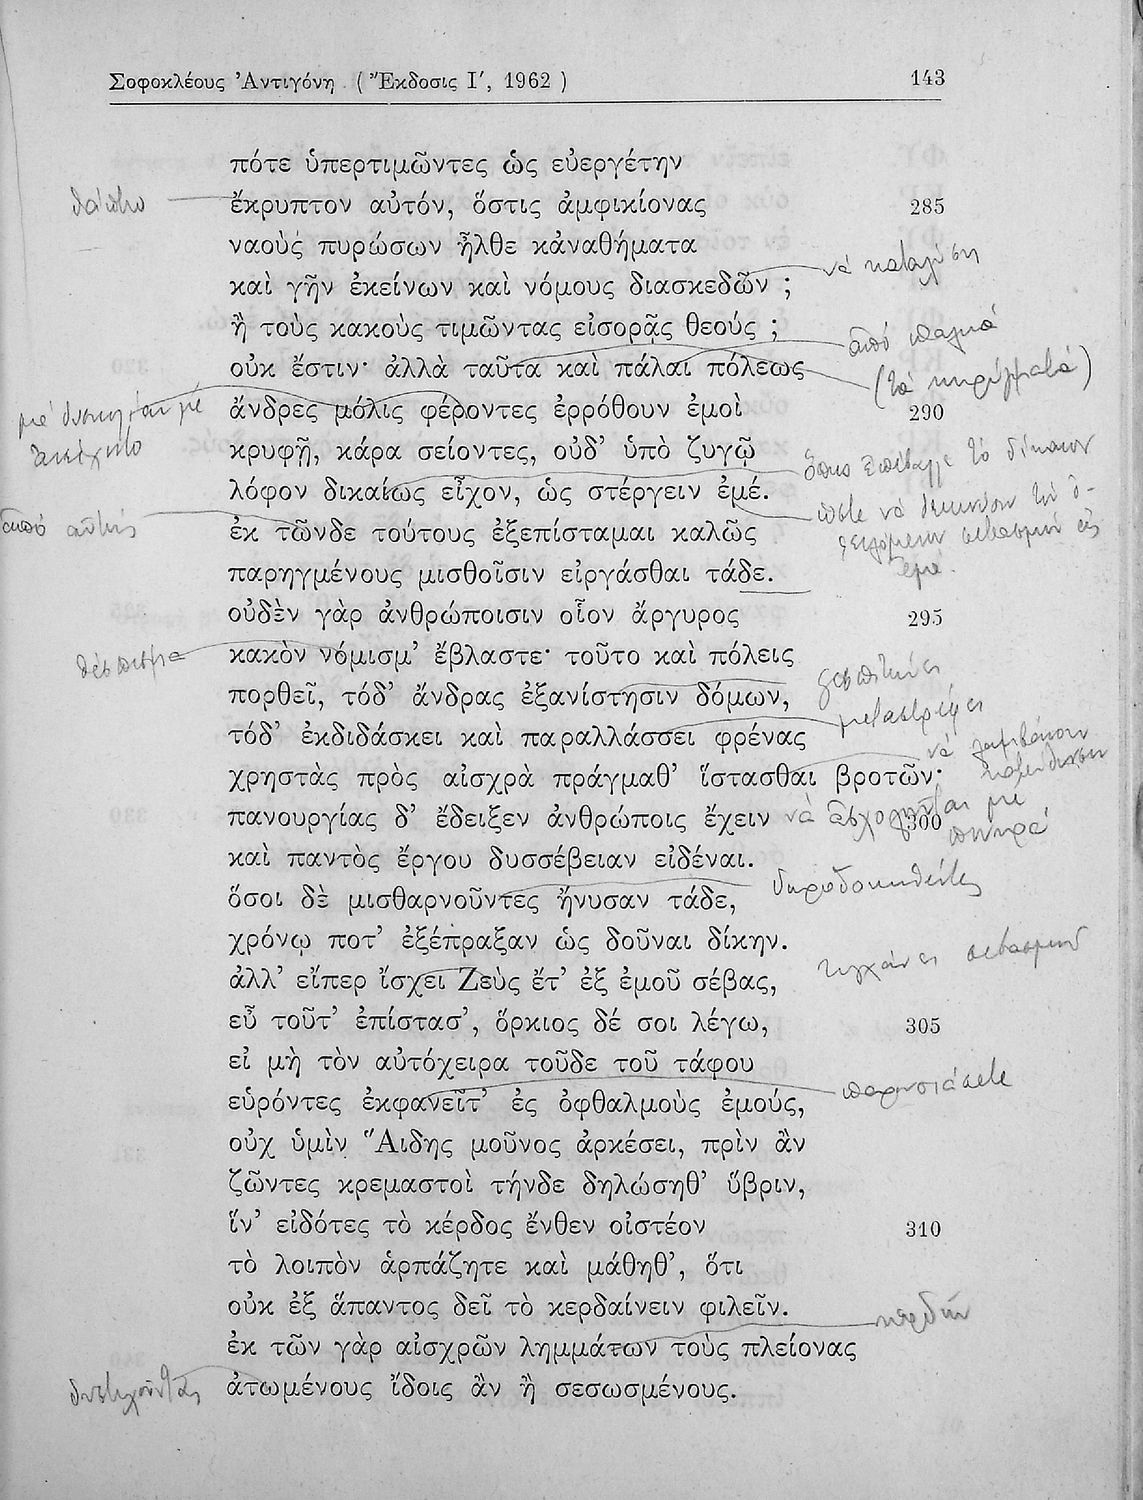 Σοφοκλέους Ἀντιγόνη ( Ἔκδοσις Ι′, 1962 ) 143
πότε ὑπερτιμῶντες ὡς εὐεργέτην
θάπτω
ἔκρυπτον αὐτόν, ὅστις ἀμφικίονας 285
ναοὺς πυρώσων ἦλθε κἀναθήματα
νά καταλύση
καὶ γῆν ἐκείνων καὶ νόμους διασκεδῶν ;
ἢ τοὺς κακοὺς τιμῶντας εἰσορᾷς θεούς ;
ἀπό παλιά
οὐκ ἔστιν· ἀλλὰ ταῦτα καὶ πάλαι πόλεως
(τά κηρύγματά)
μέ δυσκολίαν μέ
ἄνδρες μόλις φέροντες ἐρρόθουν ἐμοὶ 290
κρυφῇ, κάρα σείοντες, οὐδ' ὑπὸ ζυγῷ
ὅπως ἐπέβαλλε τό δίκαιον
λόφον δικαίως εἶχον, ὡς στέργειν ἐμέ.
ὥστε νά δεικνύουν τόν ὀ-
φειλόμενον σεβασμόν εἰς
ἐμέ.
ἀπό αὐτής
ἐκ τῶνδε τούτους ἐξεπίσταμαι καλῶς
παρηγμένους μισθοῖσιν εἰργάσθαι τάδε.
οὐδὲν γὰρ ἀνθρώποισιν οἷον ἄργυρος 295
θέσπισμα
κακὸν νόμισμ' ἔβλαστε· τοῦτο καὶ πόλεις
πορθεῖ, τόδ' ἄνδρας ἐξανίστησιν δόμων,
μεταστρέφει
τόδ' ἐκδιδάσκει καὶ παραλλάσσει φρένας
νά λαμβάνουν
χρηστὰς πρὸς αἰσχρὰ πράγμαθ' ἵστασθαι βροτῶν·
πανουργίας δ' ἔδειξεν ἀνθρώποις ἔχειν 300
νά ἀσχολῆται με
πονηρά
καὶ παντὸς ἔργου δυσσέβειαν εἰδέναι.
δωροδοκηθέντες
ὅσοι δὲ μισθαρνοῦντες ἤνυσαν τάδε,
χρόνῳ ποτ' ἐξέπραξαν ὡς δοῦναι δίκην.
τυγχάνει σεβασμοῦ
ἀλλ' εἴπερ ἴσχει Ζεὺς ἔτ' ἐξ ἐμοῦ σέβας,
εὖ τοῦτ' ἐπίστασ', ὅρκιος δέ σοι λέγω, 305
εἰ μὴ τὸν αὐτόχειρα τοῦδε τοῦ τάφου
παρουσιάσετε
εὑρόντες ἐκφανεῖτ' ἐς ὀφθαλμοὺς ἐμούς,
οὐχ ὑμὶν Ἅιδης μοῦνος ἀρκέσει, πρὶν ἂν
ζῶντες κρεμαστοὶ τήνδε δηλώσηθ' ὕβριν,
ἵν' εἰδότες τὸ κέρδος ἔνθεν οἰστέον 310
τὸ λοιπὸν ἁρπάζητε καὶ μάθηθ', ὅτι
οὐκ ἐξ ἅπαντος δεῖ τὸ κερδαίνειν φιλεῖν.
κερδῶν
ἐκ τῶν γὰρ αἰσχρῶν λημμάτων τοὺς πλείονας
δυστυχοῦντας
ἀτωμένους ἴδοις ἂν ἢ σεσωσμένους.